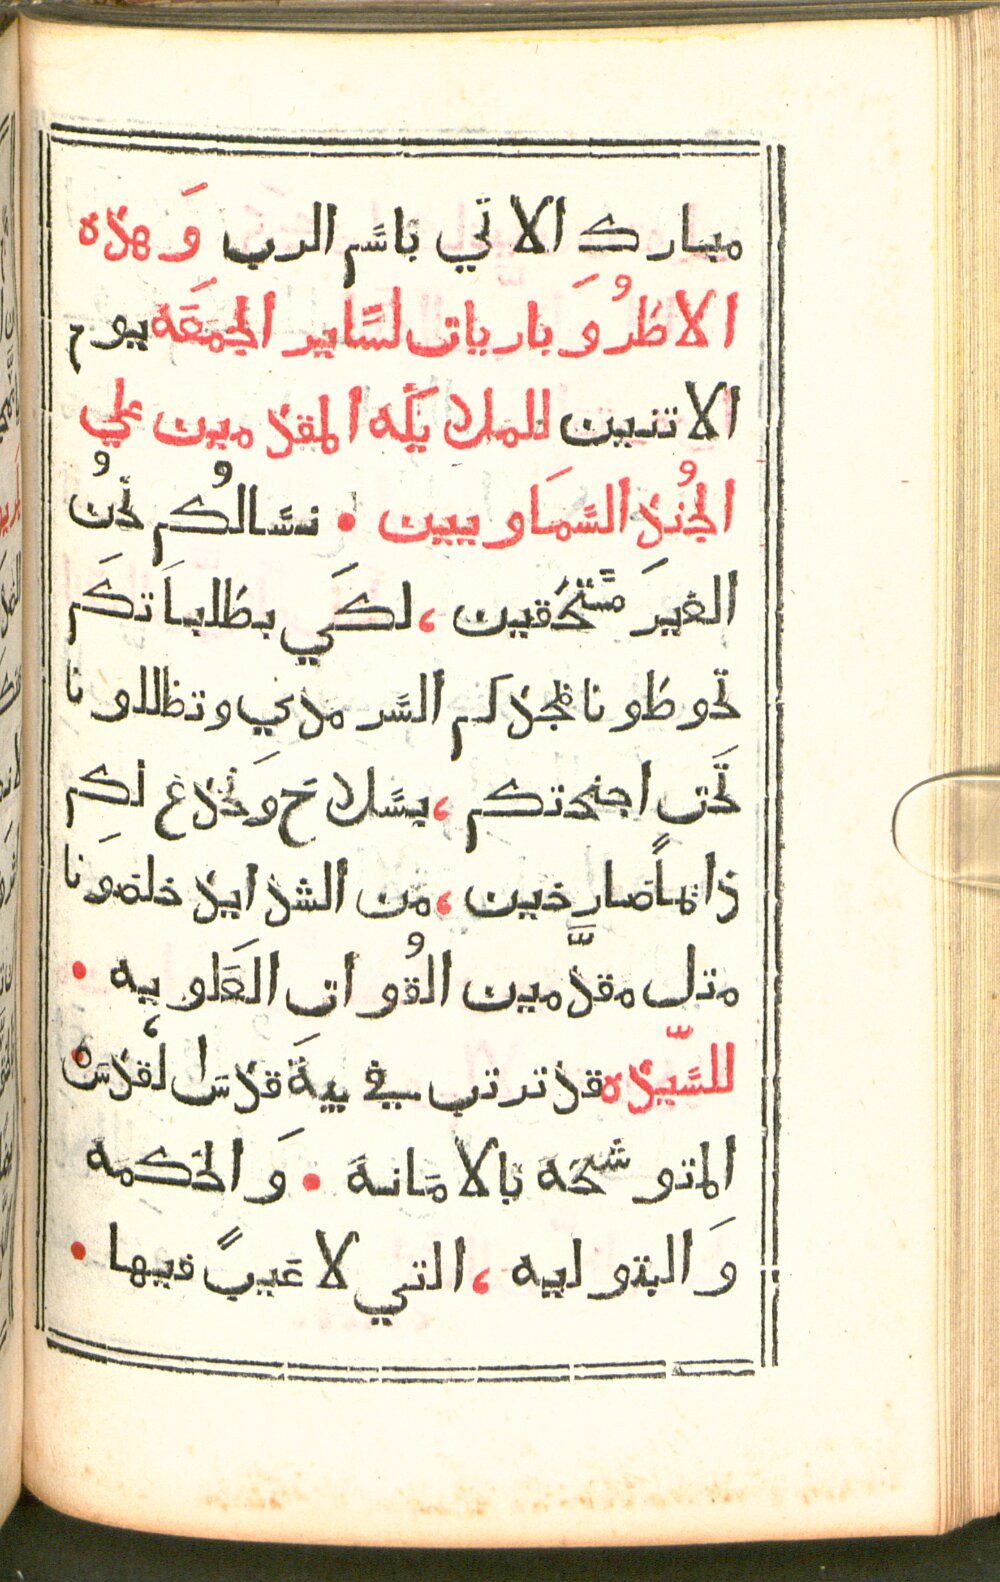 مبارك الاتي باسم الرب وَهذه
الاطرُوباريات لساير الجمعَة يوم
الاتنين للملايكَه المقدمين علي
الجُند السمَاويين • نسالكُم نحنُ
الغيرَ مستحقين، لكَي بطلباتكَم
تحوطونا بمجدكم السرمدي وتظللونا
تَحت اجنحتكم، بسلاح وَنخدع لكم
دَايماً صارخين، من الشدايد خلصونا
متل مقدّمين القُوات العَلويه •
للسيّده قد ترتب في بيةَ قدس القدسَ •
المتوشحَه بالامَانة • وَالحكمه
وَالبتوليه، التي لا عيبً فيها •